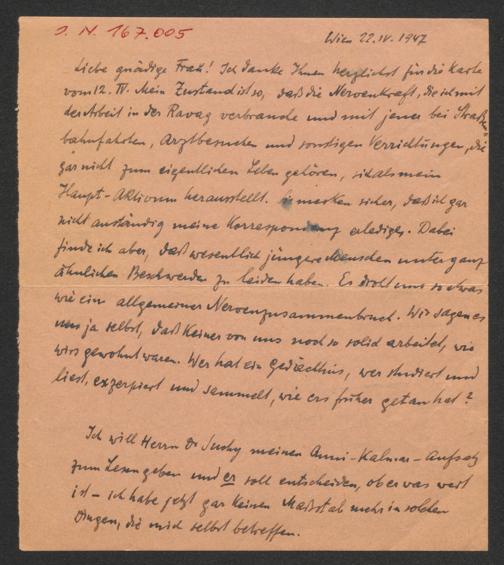 J. N. 167.005
Wien 22. IV. 1947
Liebe gnädige Frau! Ich danke Ihnen herzlichst für die Karte
vom 12. IV. Mein Zustand ist so, daß die Nervenkraft, die ich mit
der Arbeit in der Ravag verbrauche und mit jener bei Straßen-
bahnfahrten, Arztbesuchen und sonstigen Verrichtungen, die
gar nicht zum eigentlichen Leben gehören, sich als mein
Haupt-Aktivum herausstellt. Sie merken sicher, daß ich gar
nicht anständig meine Korrespondenz erledige. Dabei
finde ich aber, daß wesentlich jüngere Menschen unter ganz
ähnlichen Beschwerden zu leiden haben. Es droht uns so etwas
wie ein allgemeiner Nervenzusammenbruch. Wir sagen es
uns ja selbst, daß keiner von uns noch so solid arbeitet, wie
wirs gewohnt waren. Wer hat ein Gedächtnis, wer studiert und
liest, exzerpiert und sammelt, wie ers früher getan hat?
Ich will Herrn Dr Suchy meinen Anni-Kalmar-Aufsatz
zum Lesen geben und er soll entscheiden, ob er was wert
ist – ich habe jetzt gar keinen Maßstab mehr in solchen
Dingen, die mich selbst betreffen.